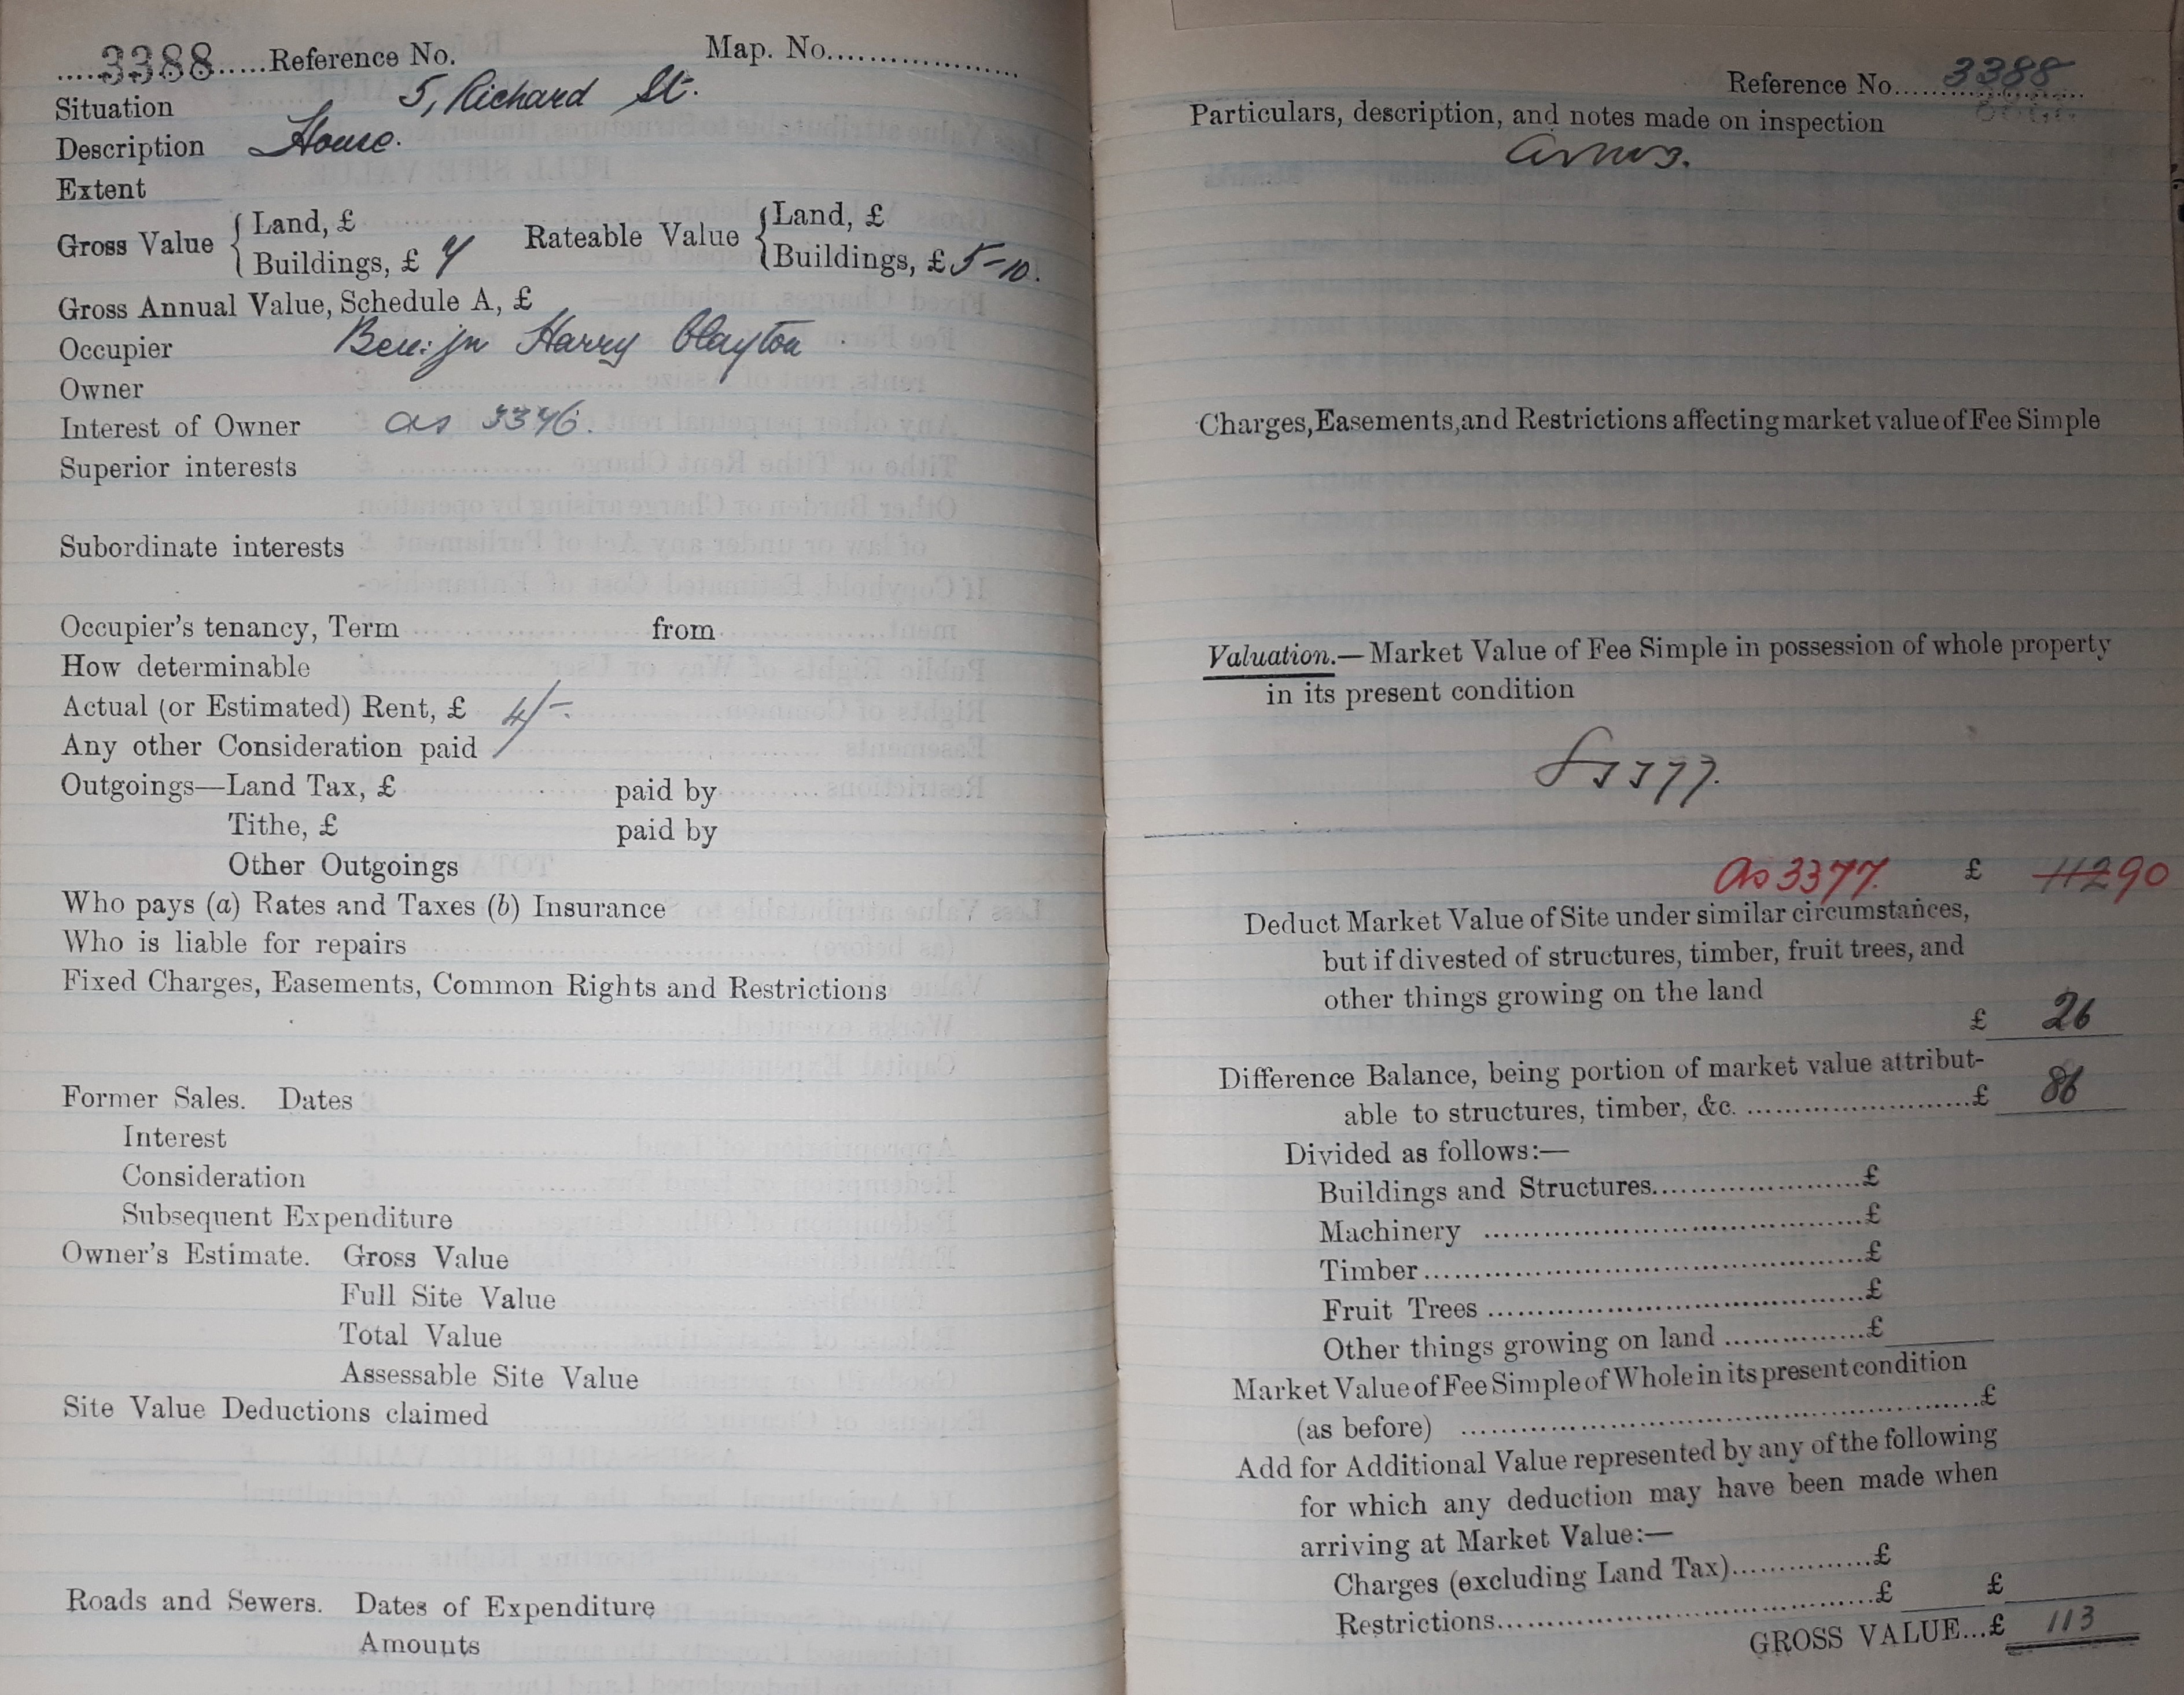 3388 Reference No. Map. No.
Situation 5, Richard St.
Description House.
Extent
Gross Value { Land, £ Rateable Value { Land, £
Buildings, £ 7 Buildings, £ 5-10.
Gross Annual Value, Schedule A, £
Occupier Benjn Harry Clayton
Owner
Interest of Owner as 3376.
Superior interests
Subordinate interests
Occupier's tenancy, Term from
How determinable
Actual (or Estimated) Rent, £ 4/-
Any other Consideration paid
Outgoings—Land Tax, £ paid by
Tithe, £ paid by
Other Outgoings
Who pays (a) Rates and Taxes (b) Insurance
Who is liable for repairs
Fixed Charges, Easements, Common Rights and Restrictions
Former Sales. Dates
Interest
Consideration
Subsequent Expenditure
Owner's Estimate. Gross Value
Full Site Value
Total Value
Assessable Site Value
Site Value Deductions claimed
Roads and Sewers. Dates of Expenditure
Amounts
Reference No. 3388
Particulars, description, and notes made on inspection
Charges, Easements, and Restrictions affecting market value of Fee Simple
Valuation.—Market Value of Fee Simple in possession of whole property
in its present condition
As 3377. £ 112 90
Deduct Market Value of Site under similar circumstances,
but if divested of structures, timber, fruit trees, and
other things growing on the land
£ 26
Difference Balance, being portion of market value attribut-
able to structures, timber, &c. £ 86
Divided as follows:—
Buildings and Structures £
Machinery £
Timber £
Fruit Trees £
Other things growing on land £
Market Value of Fee Simple of Whole in its present condition
(as before) £
Add for Additional Value represented by any of the following
for which any deduction may have been made when
arriving at Market Value:—
Charges (excluding Land Tax) £
Restrictions £ £
GROSS VALUE...£ 113